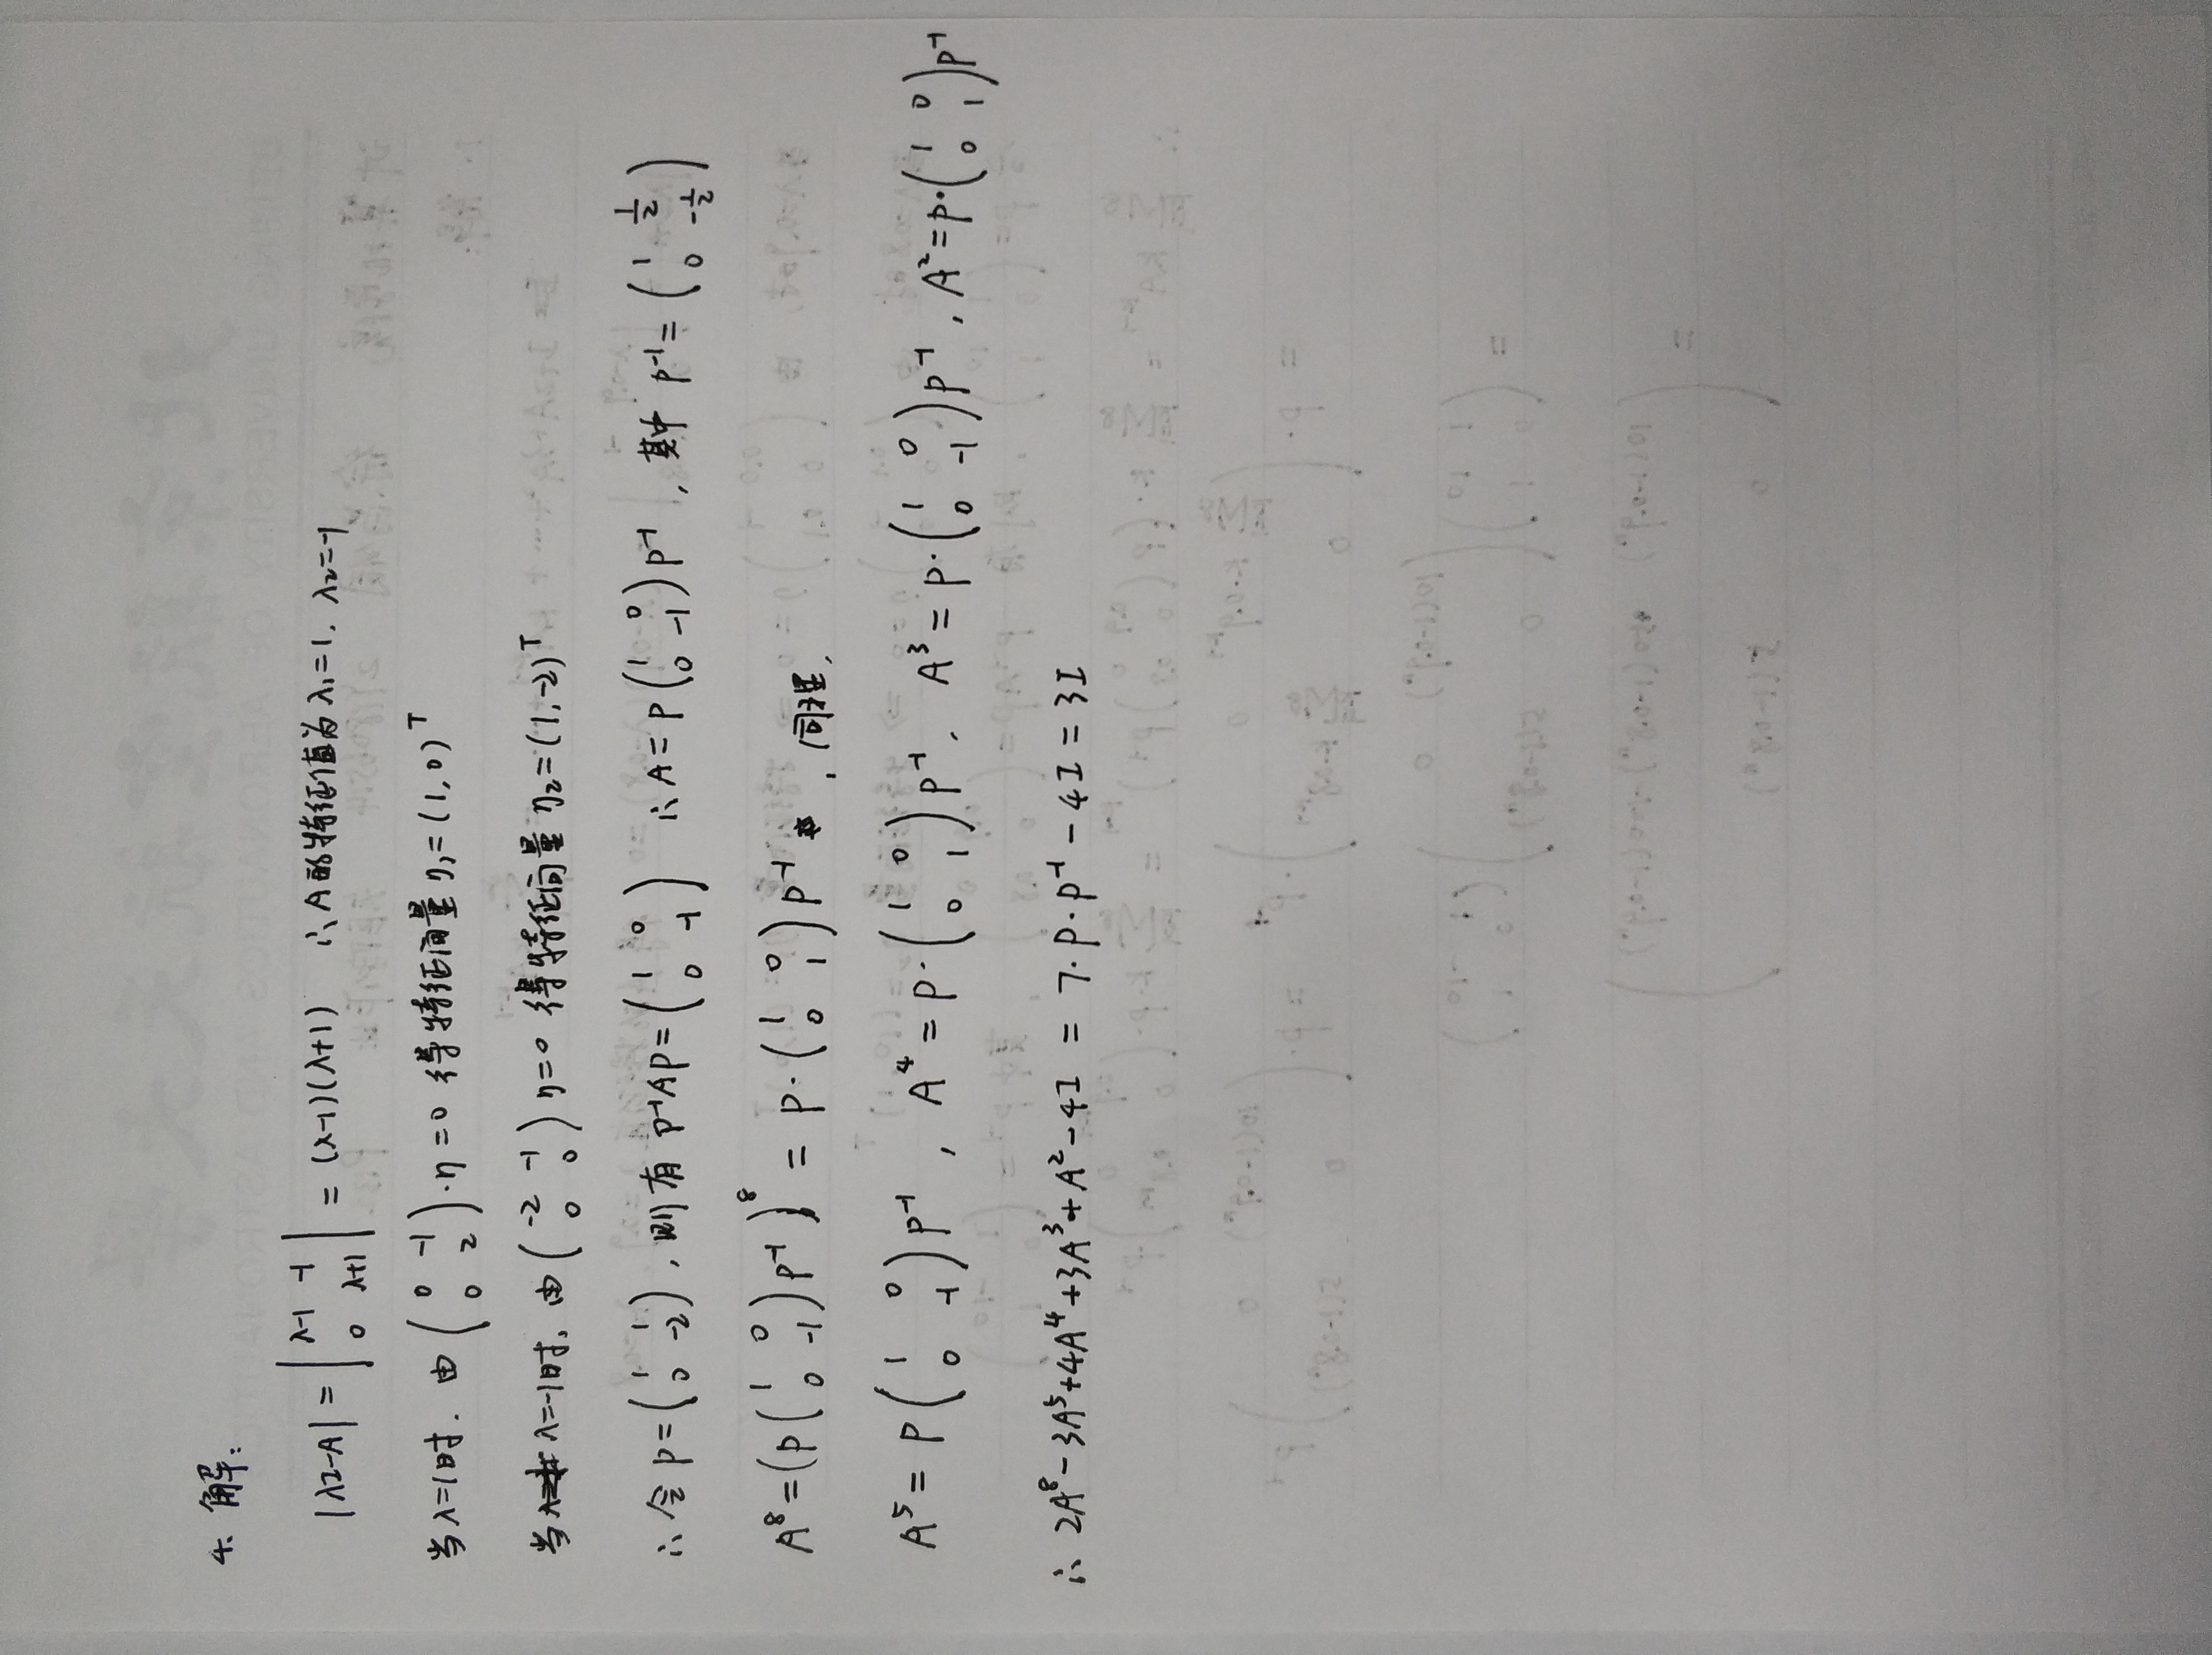 4. 解:
|λI-A| = | λ-1 -1 ; 0 λ+1 | = (λ-1)(λ+1) ∴ A的特征值为 λ₁=1, λ₂=-1
当λ=1时, 由 ( 0 -1 ; 0 2 )·η=0 得特征向量 η₁=(1,0)ᵀ
当λ=-1时, 由 ( -2 -1 ; 0 0 ) η=0 得特征向量 η₂=(1,-2)ᵀ
∴ 令 P=( 1 1 ; 0 -2 ), 则有 P⁻¹AP=( 1 0 ; 0 -1 ) ∴ A=P( 1 0 ; 0 -1 )P⁻¹, 其中 P⁻¹=( 1 1/2 ; 0 -1/2 )
A⁸=(P( 1 0 ; 0 -1 )P⁻¹)⁸ = P·( 1 0 ; 0 1 )P⁻¹, 同理,
A⁵=P( 1 0 ; 0 -1 )P⁻¹, A⁴=P·( 1 0 ; 0 1 )P⁻¹, A³=P·( 1 0 ; 0 -1 )P⁻¹, A²=P·( 1 0 ; 0 1 )P⁻¹
∴ 2A⁸-3A⁵+4A⁴+3A³+A²-4I = 7·P·P⁻¹-4I=3I